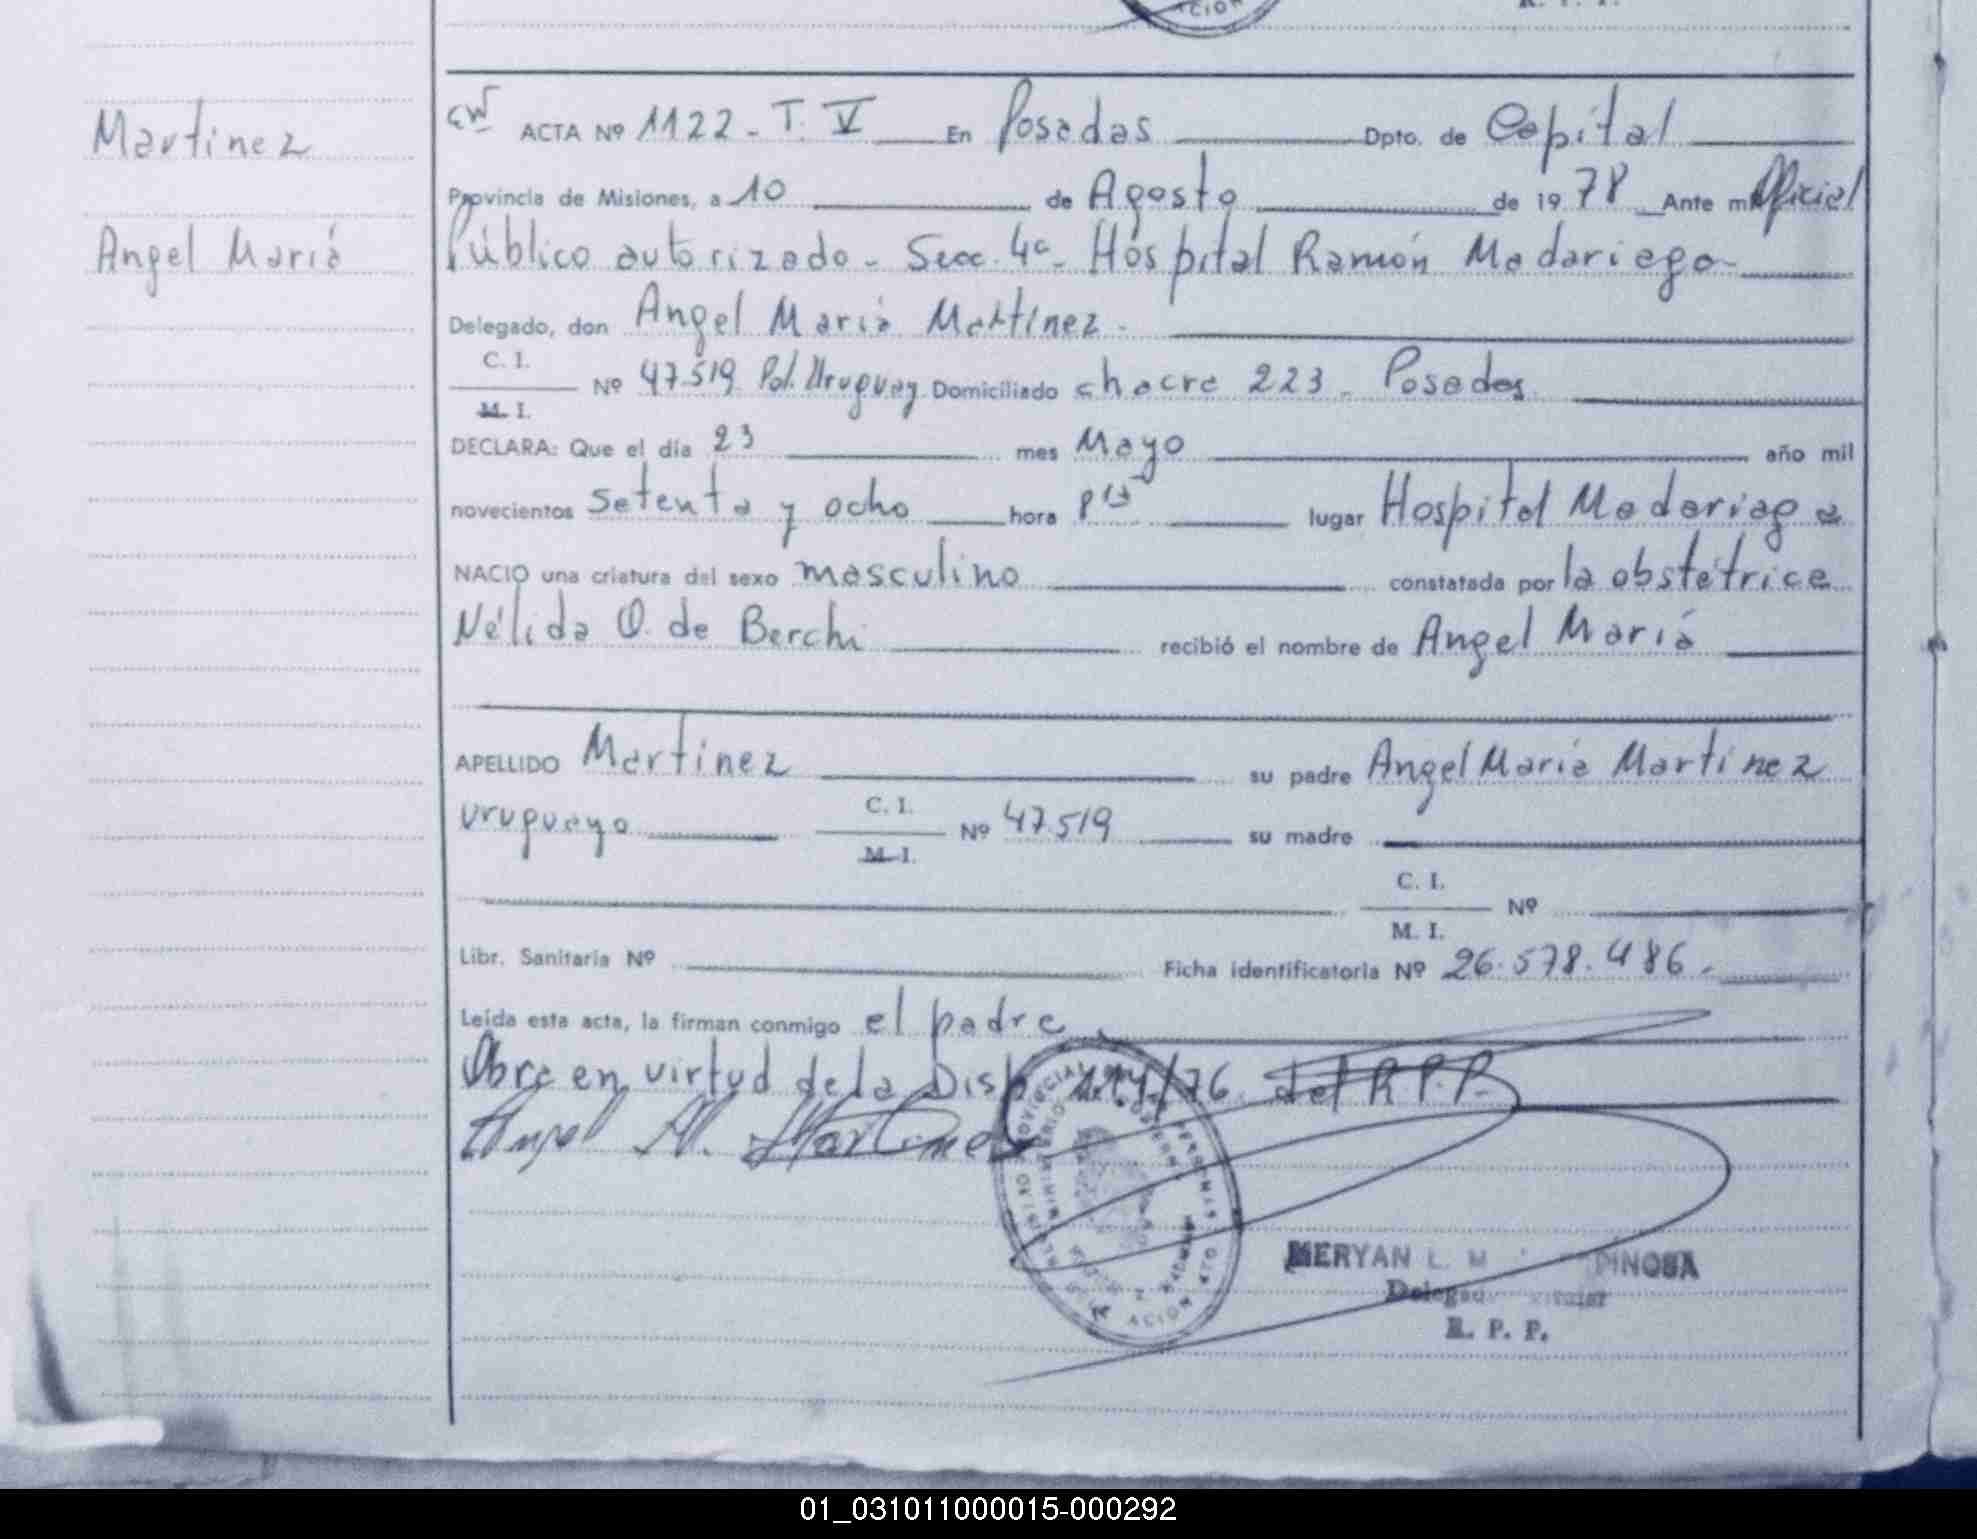 ACION
Martinez
Angel María
ACTA Nº 1122 - T. V En Posadas Dpto. de Capital
Provincia de Misiones, a 10 de Agosto de 1978 Ante mi Oficial
Público autorizado - Secc. 4ª - Hospital Ramón Madariaga -
Delegado, don Angel María Martínez -
C. I.
M. I.
Nº 47.519 Pol. Uruguay Domiciliado chacra 223 - Posadas
DECLARA: Que el día 23 mes Mayo año mil
novecientos setenta y ocho hora lugar Hospital Madariaga
NACIO una criatura del sexo masculino constatada por la obstétrica
Nélida O. de Berchi recibió el nombre de Angel María
APELLIDO Martínez su padre Angel María Martínez
uruguayo C. I. Nº 47.519 su madre
M. I.
C. I. Nº
M. I.
Libr. Sanitaria Nº Ficha identificatoria Nº 26.578.486.-
Leída esta acta, la firman conmigo el padre
Obra en virtud de la Disp. /76 del R.P.P.
Angel M. Martinez
MERYAN L. M PINOSA
R. P. P.
01_031011000015-000292